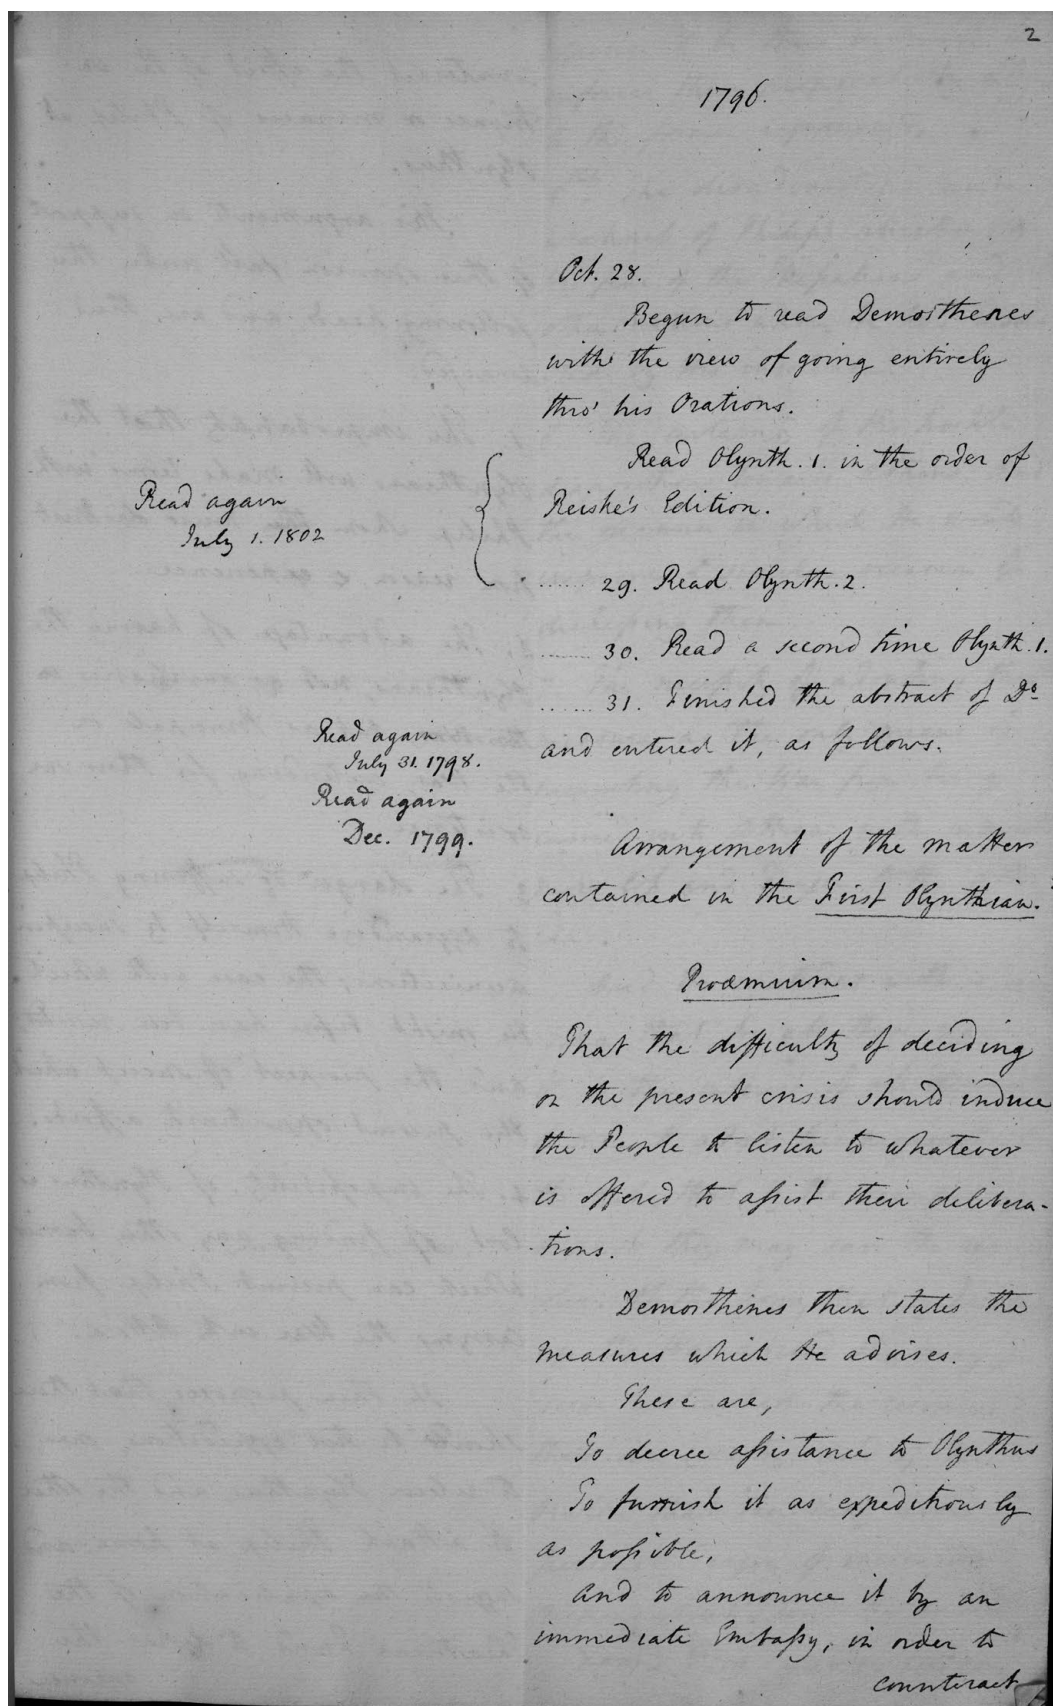 2
1796.
Oct. 28.
Begun to read Demosthenes
with the view of going entirely
thro' his Orations.
Read Olynth. 1. in the order of
Reiske's Edition.
Read again
July 1. 1802
...... 29. Read Olynth. 2.
....... 30. Read a second time Olynth. 1.
....... 31. Finished the abstract of Do
and entered it, as follows.
Read again
July 31. 1798.
Read again
Dec. 1799.
Arrangement of the matter
contained in the First Olynthian.
Proæmium.
That the difficulty of deciding
on the present crisis should induce
the People to listen to whatever
is offered to assist their delibera-
tions.
Demosthenes then states the
measures which He advises.
These are,
To decree assistance to Olynthus
To furnish it as expeditiously
as possible,
And to announce it by an
immediate Embassy, in order to
counteract